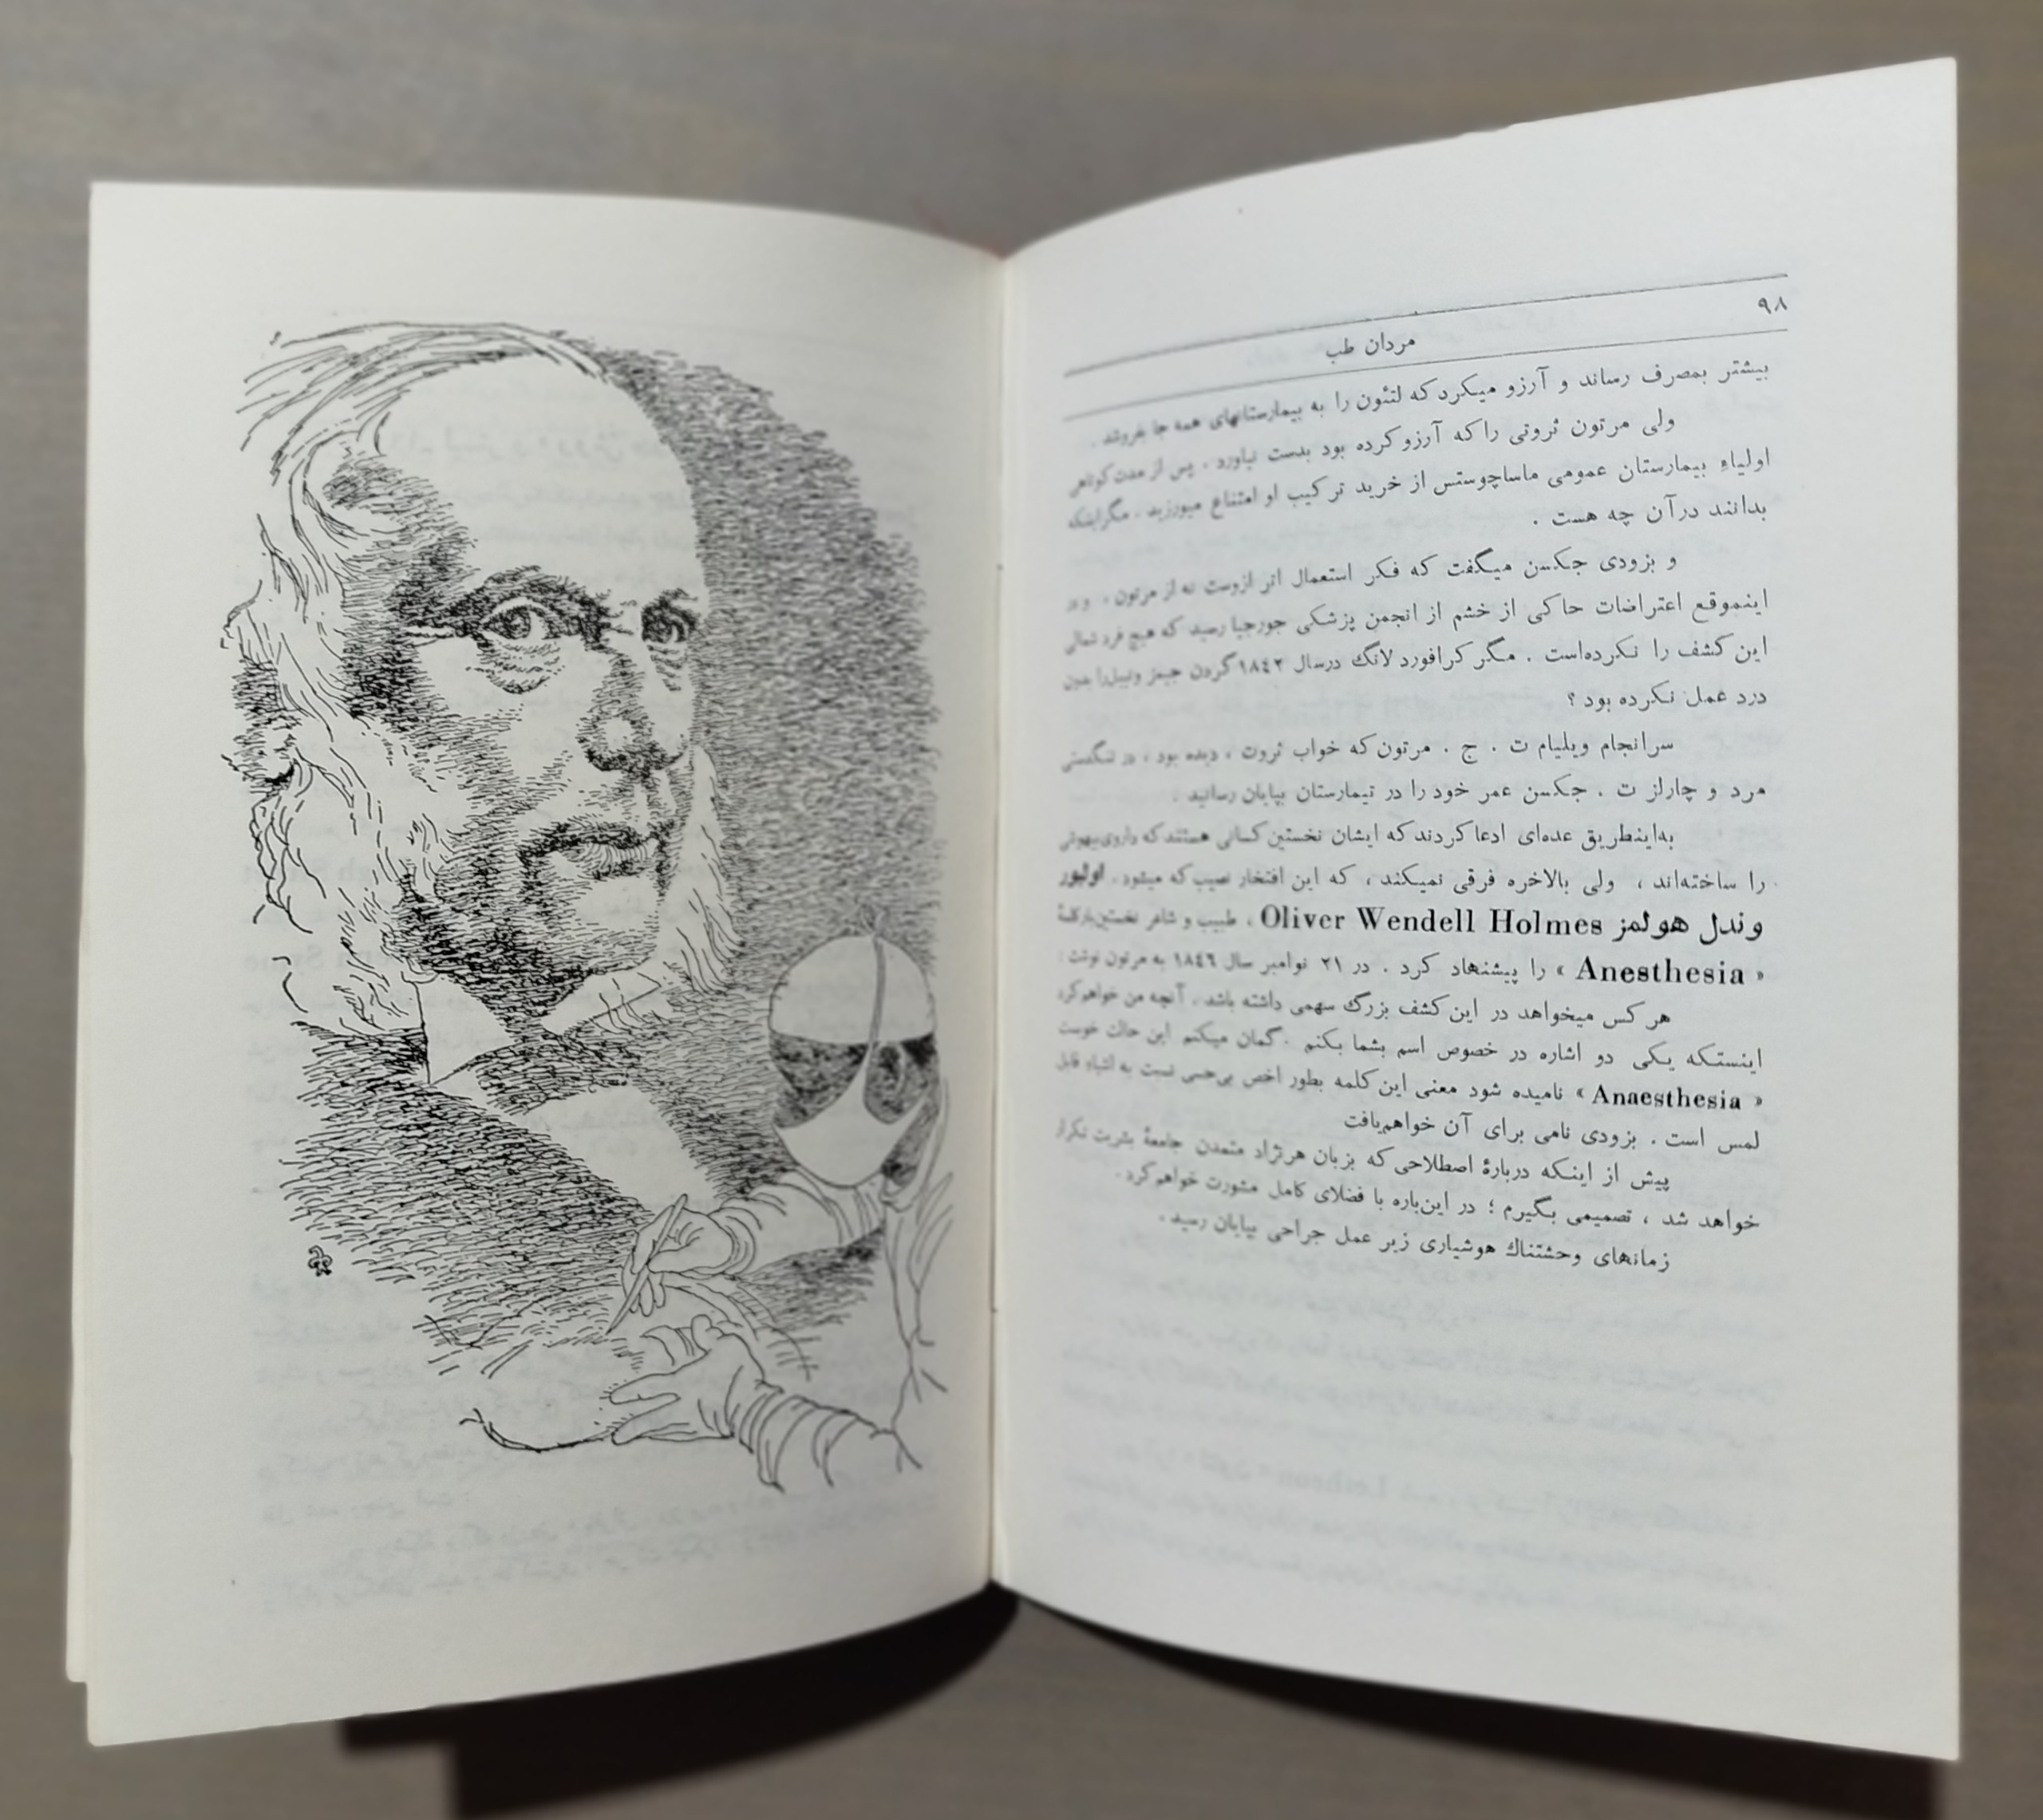 ۹۸
مردان طب
بیشتر بمصرف رساند و آرزو میکرد که لتئون را به بیمارستانهای همه جا بفروشد .
ولی مرتون ثروتی را که آرزو کرده بود بدست نیاورد . پس از مدت کوتاهی
اولیاء بیمارستان عمومی ماساچوستس از خرید ترکیب او امتناع میورزید . مگر اینکه
بدانند در آن چه هست .
و بزودی جکسن میگفت که فکر استعمال اتر ازوست نه از مرتون . و در
اینموقع اعتراضات حاکی از خشم از انجمن پزشکی جورجیا رسید که هیچ فرد شمالی
این کشف را نکرده‌است . مگر کرافورد لانگ در سال ۱۸٤۲ گردن جیمز ونیبل را بدون
درد عمل نکرده بود ؟
سرانجام ویلیام ت . ج . مرتون که خواب ثروت ، دیده بود ، در تنگدستی
مرد و چارلز ت . جکسن عمر خود را در تیمارستان بپایان رسانید .
به‌اینطریق عده‌ای ادعا کردند که ایشان نخستین کسانی هستند که داروی بیهوشی
را ساخته‌اند ، ولی بالاخره فرقی نمیکند ، که این افتخار نصیب که میشود . اولیور
وندل هولمز Oliver Wendell Holmes ، طبیب و شاعر نخستین بار کلمهٔ
« Anesthesia » را پیشنهاد کرد . در ۲۱ نوامبر سال ۱۸٤٦ به مرتون نوشت :
هر کس میخواهد در این کشف بزرگ سهمی داشته باشد . آنچه من خواهم کرد
اینستکه یکی دو اشاره در خصوص اسم بشما بکنم . گمان میکنم این حالت خوبست
« Anaesthesia » نامیده شود معنی این کلمه بطور اخص بی‌حسی نسبت به اشیاء قابل
لمس است . بزودی نامی برای آن خواهم‌یافت
پیش از اینکه دربارهٔ اصطلاحی که بزبان هر نژاد متمدن جامعهٔ بشریت تکرار
خواهد شد ، تصمیمی بگیرم ؛ در این‌باره با فضلای کامل مشورت خواهم کرد .
زمانهای وحشتناك هوشیاری زیر عمل جراحی بپایان رسید .